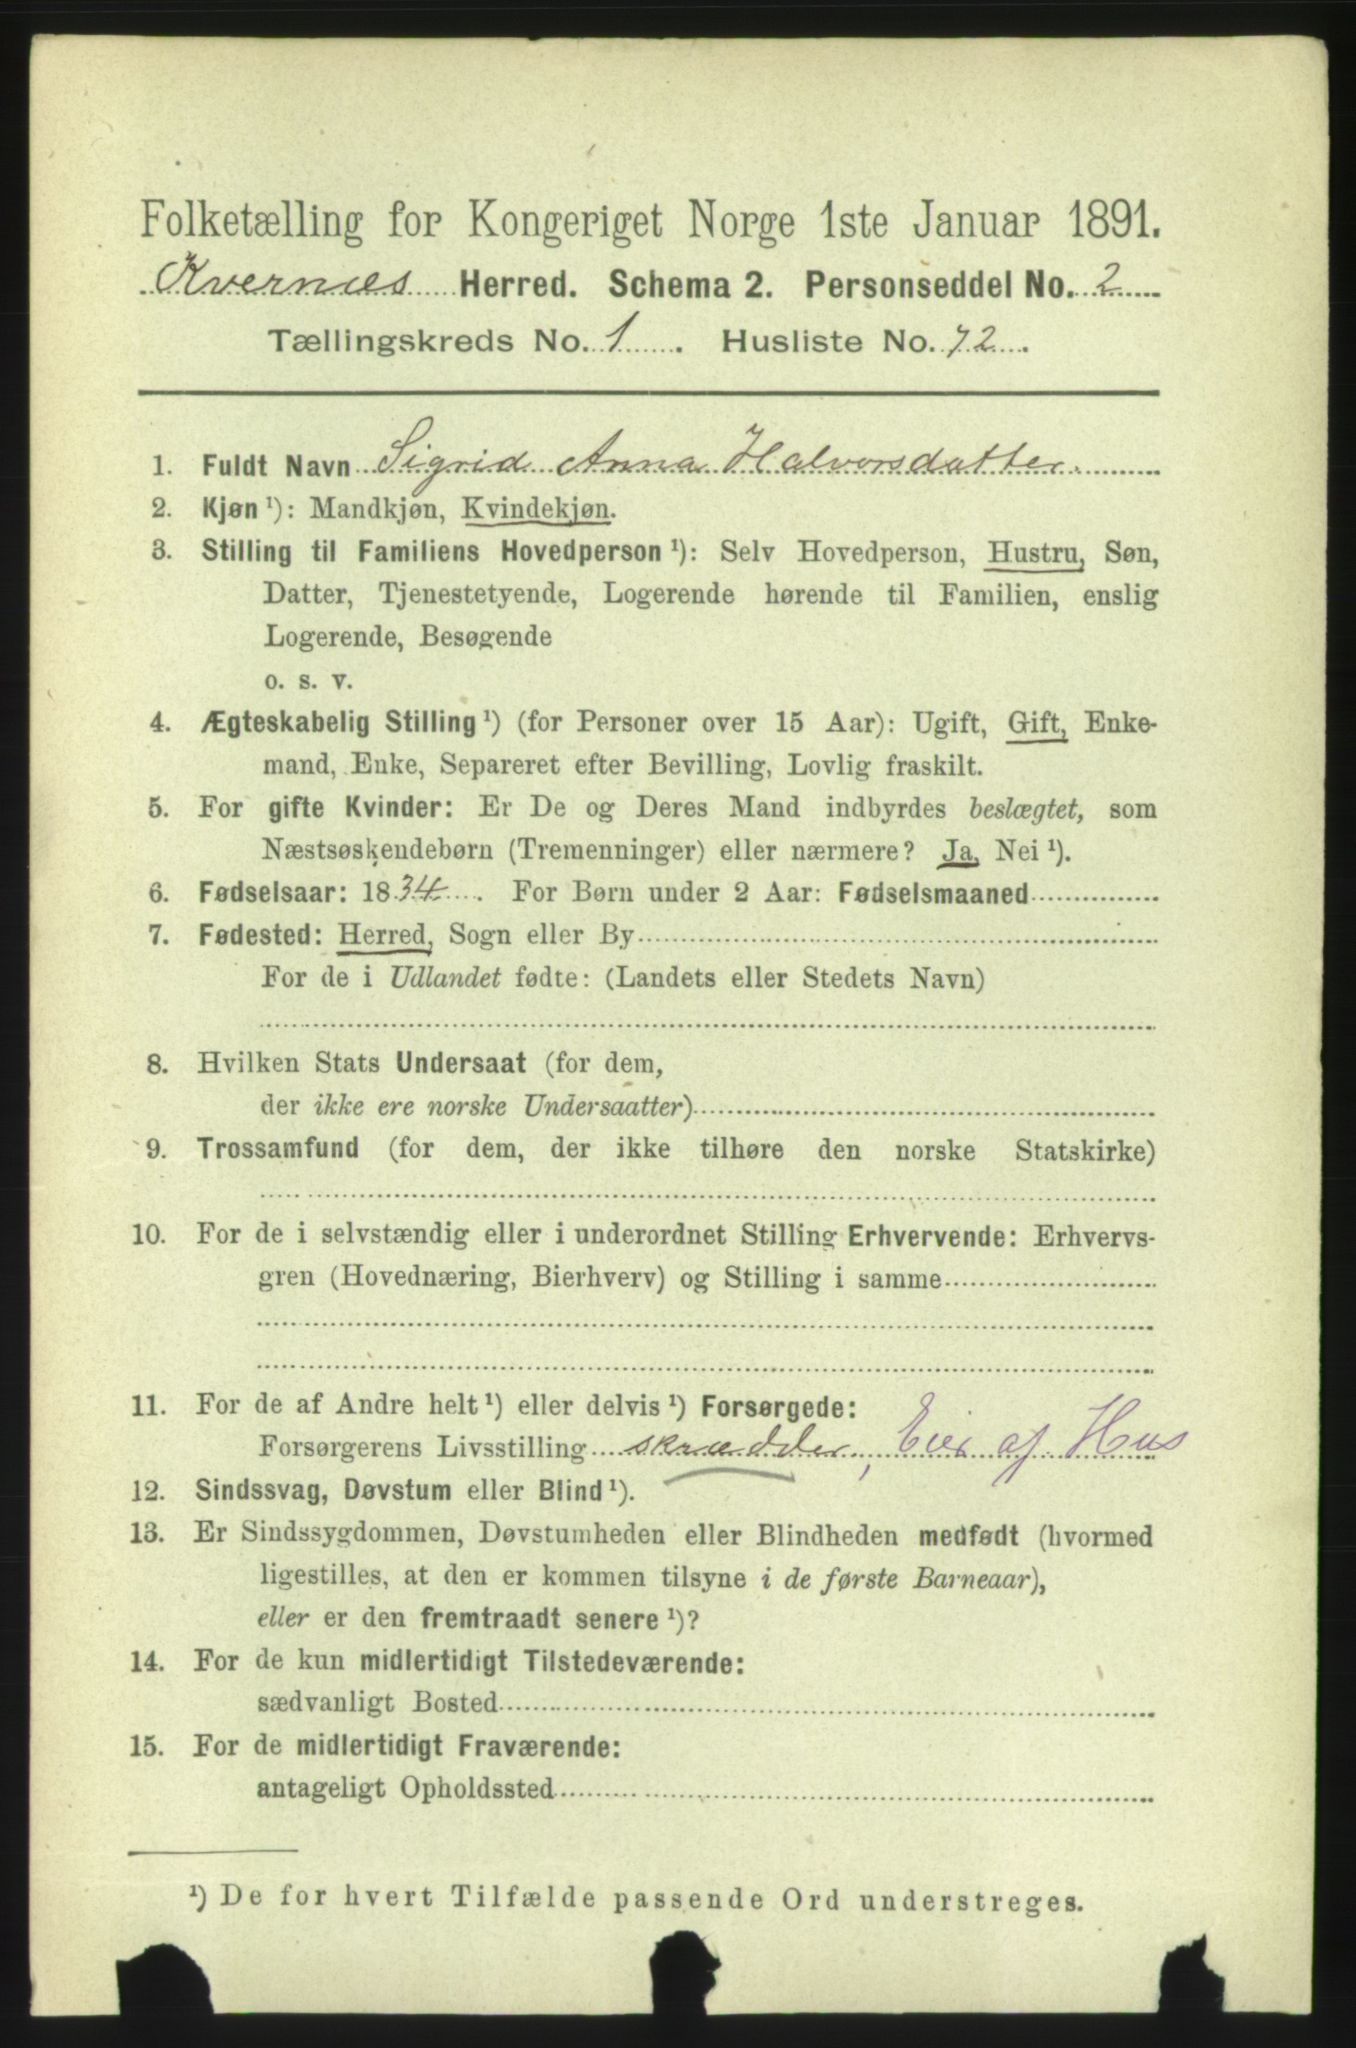 Folketælling for Kongeriget Norge 1ste Januar 1891.
Kvernæs Herred. Schema 2. Personseddel No. 2
Tællingskreds No. 1. Husliste No. 72.
1. Fuldt Navn Sigrid Anna Halvorsdatter.
2. Kjøn ¹): Mandkjøn, Kvindekjøn.
3. Stilling til Familiens Hovedperson ¹): Selv Hovedperson, Hustru, Søn,
Datter, Tjenestetyende, Logerende hørende til Familien, enslig
Logerende, Besøgende
o. s. v.
4. Ægteskabelig Stilling ¹) (for Personer over 15 Aar): Ugift, Gift, Enke-
mand, Enke, Separeret efter Bevilling, Lovlig fraskilt.
5. For gifte Kvinder: Er De og Deres Mand indbyrdes beslægtet, som
Næstsøskendebørn (Tremenninger) eller nærmere? Ja, Nei ¹).
6. Fødselsaar: 1834. For Børn under 2 Aar: Fødselsmaaned
7. Fødested: Herred, Sogn eller By
For de i Udlandet fødte: (Landets eller Stedets Navn)
8. Hvilken Stats Undersaat (for dem,
der ikke ere norske Undersaatter)
9. Trossamfund (for dem, der ikke tilhøre den norske Statskirke)
10. For de i selvstændig eller i underordnet Stilling Erhvervende: Erhvervs-
gren (Hovednæring, Bierhverv) og Stilling i samme
11. For de af Andre helt ¹) eller delvis ¹) Forsørgede:
Forsørgerens Livsstilling skrædder, Eier af Hus
12. Sindssvag, Døvstum eller Blind ¹).
13. Er Sindssygdommen, Døvstumheden eller Blindheden medfødt (hvormed
ligestilles, at den er kommen tilsyne i de første Barneaar),
eller er den fremtraadt senere ¹)?
14. For de kun midlertidigt Tilstedeværende:
sædvanligt Bosted
15. For de midlertidigt Fraværende:
antageligt Opholdssted
¹) De for hvert Tilfælde passende Ord understreges.